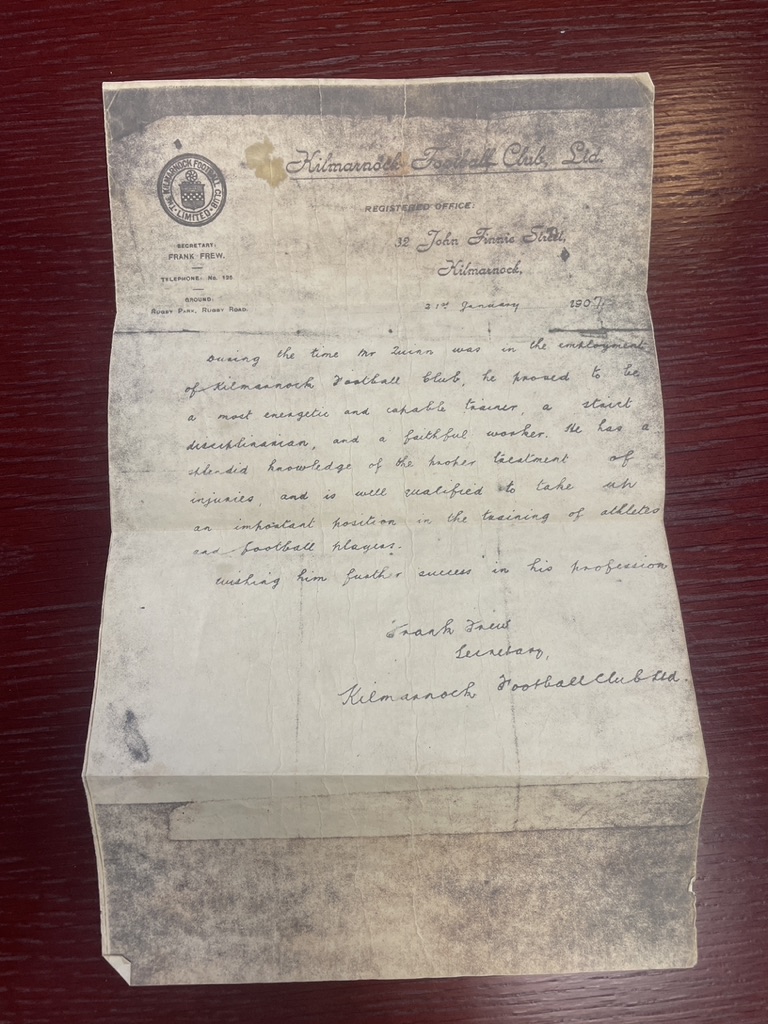 Kilmarnock Football Club, Ltd.
THE KILMARNOCK FOOTBALL CLUB
LIMITED
REGISTERED OFFICE:
32 John Finnie Street,
Kilmarnock,
SECRETARY:
FRANK FREW.
TELEPHONE: No. 195
GROUND:
RUGBY PARK, RUGBY ROAD.
21st January 1907
During the time Mr Quinn was in the employment
of Kilmarnock Football Club, he proved to be
a most energetic and capable trainer, a strict
disciplinarian, and a faithful worker. He has a
splendid knowledge of the proper treatment of
injuries, and is well qualified to take up
an important position in the training of athletes
and football players.
Wishing him further success in his profession
Frank Frew
Secretary,
Kilmarnock Football Club Ltd.